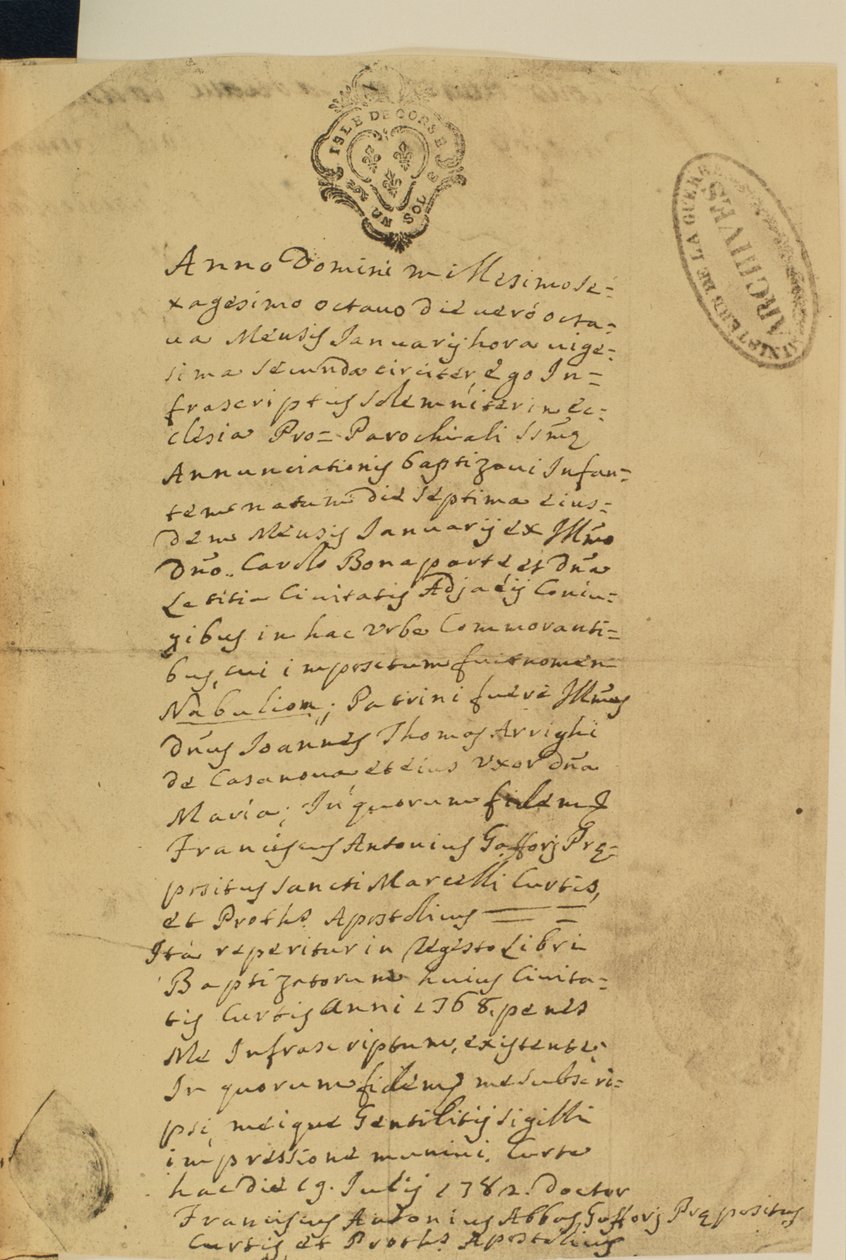 ISLE DE CORSE
UN SOL
MINISTERE DE LA GUERRE
ARCHIVES
Anno Domini millesimo se-
xagesimo octauo die uero octa=
ua Mensis Januarij hora uige=
sima secunda circiter, ego In=
frascriptus solemniter in ec=
clesia Pro= Parochiali
Annunciationis baptizaui Infan=
tem natum die septima eius=
dem Mensis Januarij ex Illm̃o
Dño. Carolo Bonaparte et Dña
Letitia Ciuitatis Adjacij Coniu=
gibus in hac Vrbe Commoranti=
bus, cui impositum fuit nomen
Nabulion; Patrini fuere Illm̃us
Dñus Joannes Thomas Arrighi
de Casanoua et eius Vxor Dña
Maria; In quorum fidem
Franciscus Antonius Gafforj Pre=
positus Sancti Marcelli Curtis,
et Proth.s Apostolicus
Ita reperitur in Regesto Libri
Baptizatorum huius Ciuita=
tis Curtis Anni 1768. penes
Me Infrascriptum, existente;
In quorum fidem me subscri=
psi, meique Gentilitij sigilli
impressione muniui. Curte
hac die 19. Julij 1782. Doctor
Franciscus Antonius Abbas Gafforj Prepositus
Curtis et Proth.s Apostolicus